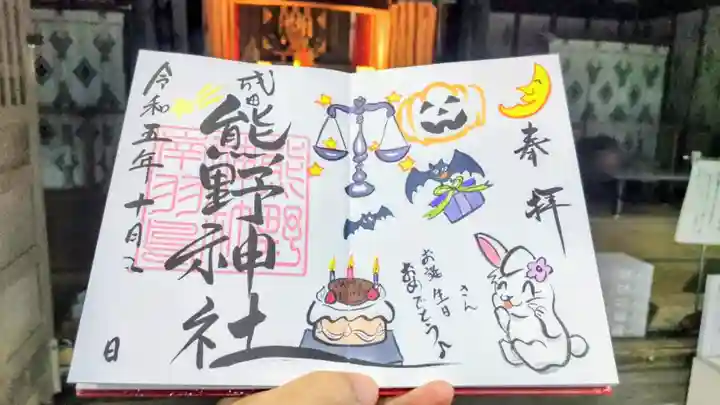 奉拝
お誕生日
おめでとう♪
さん
成田
熊野神社
令和五年十月二
日